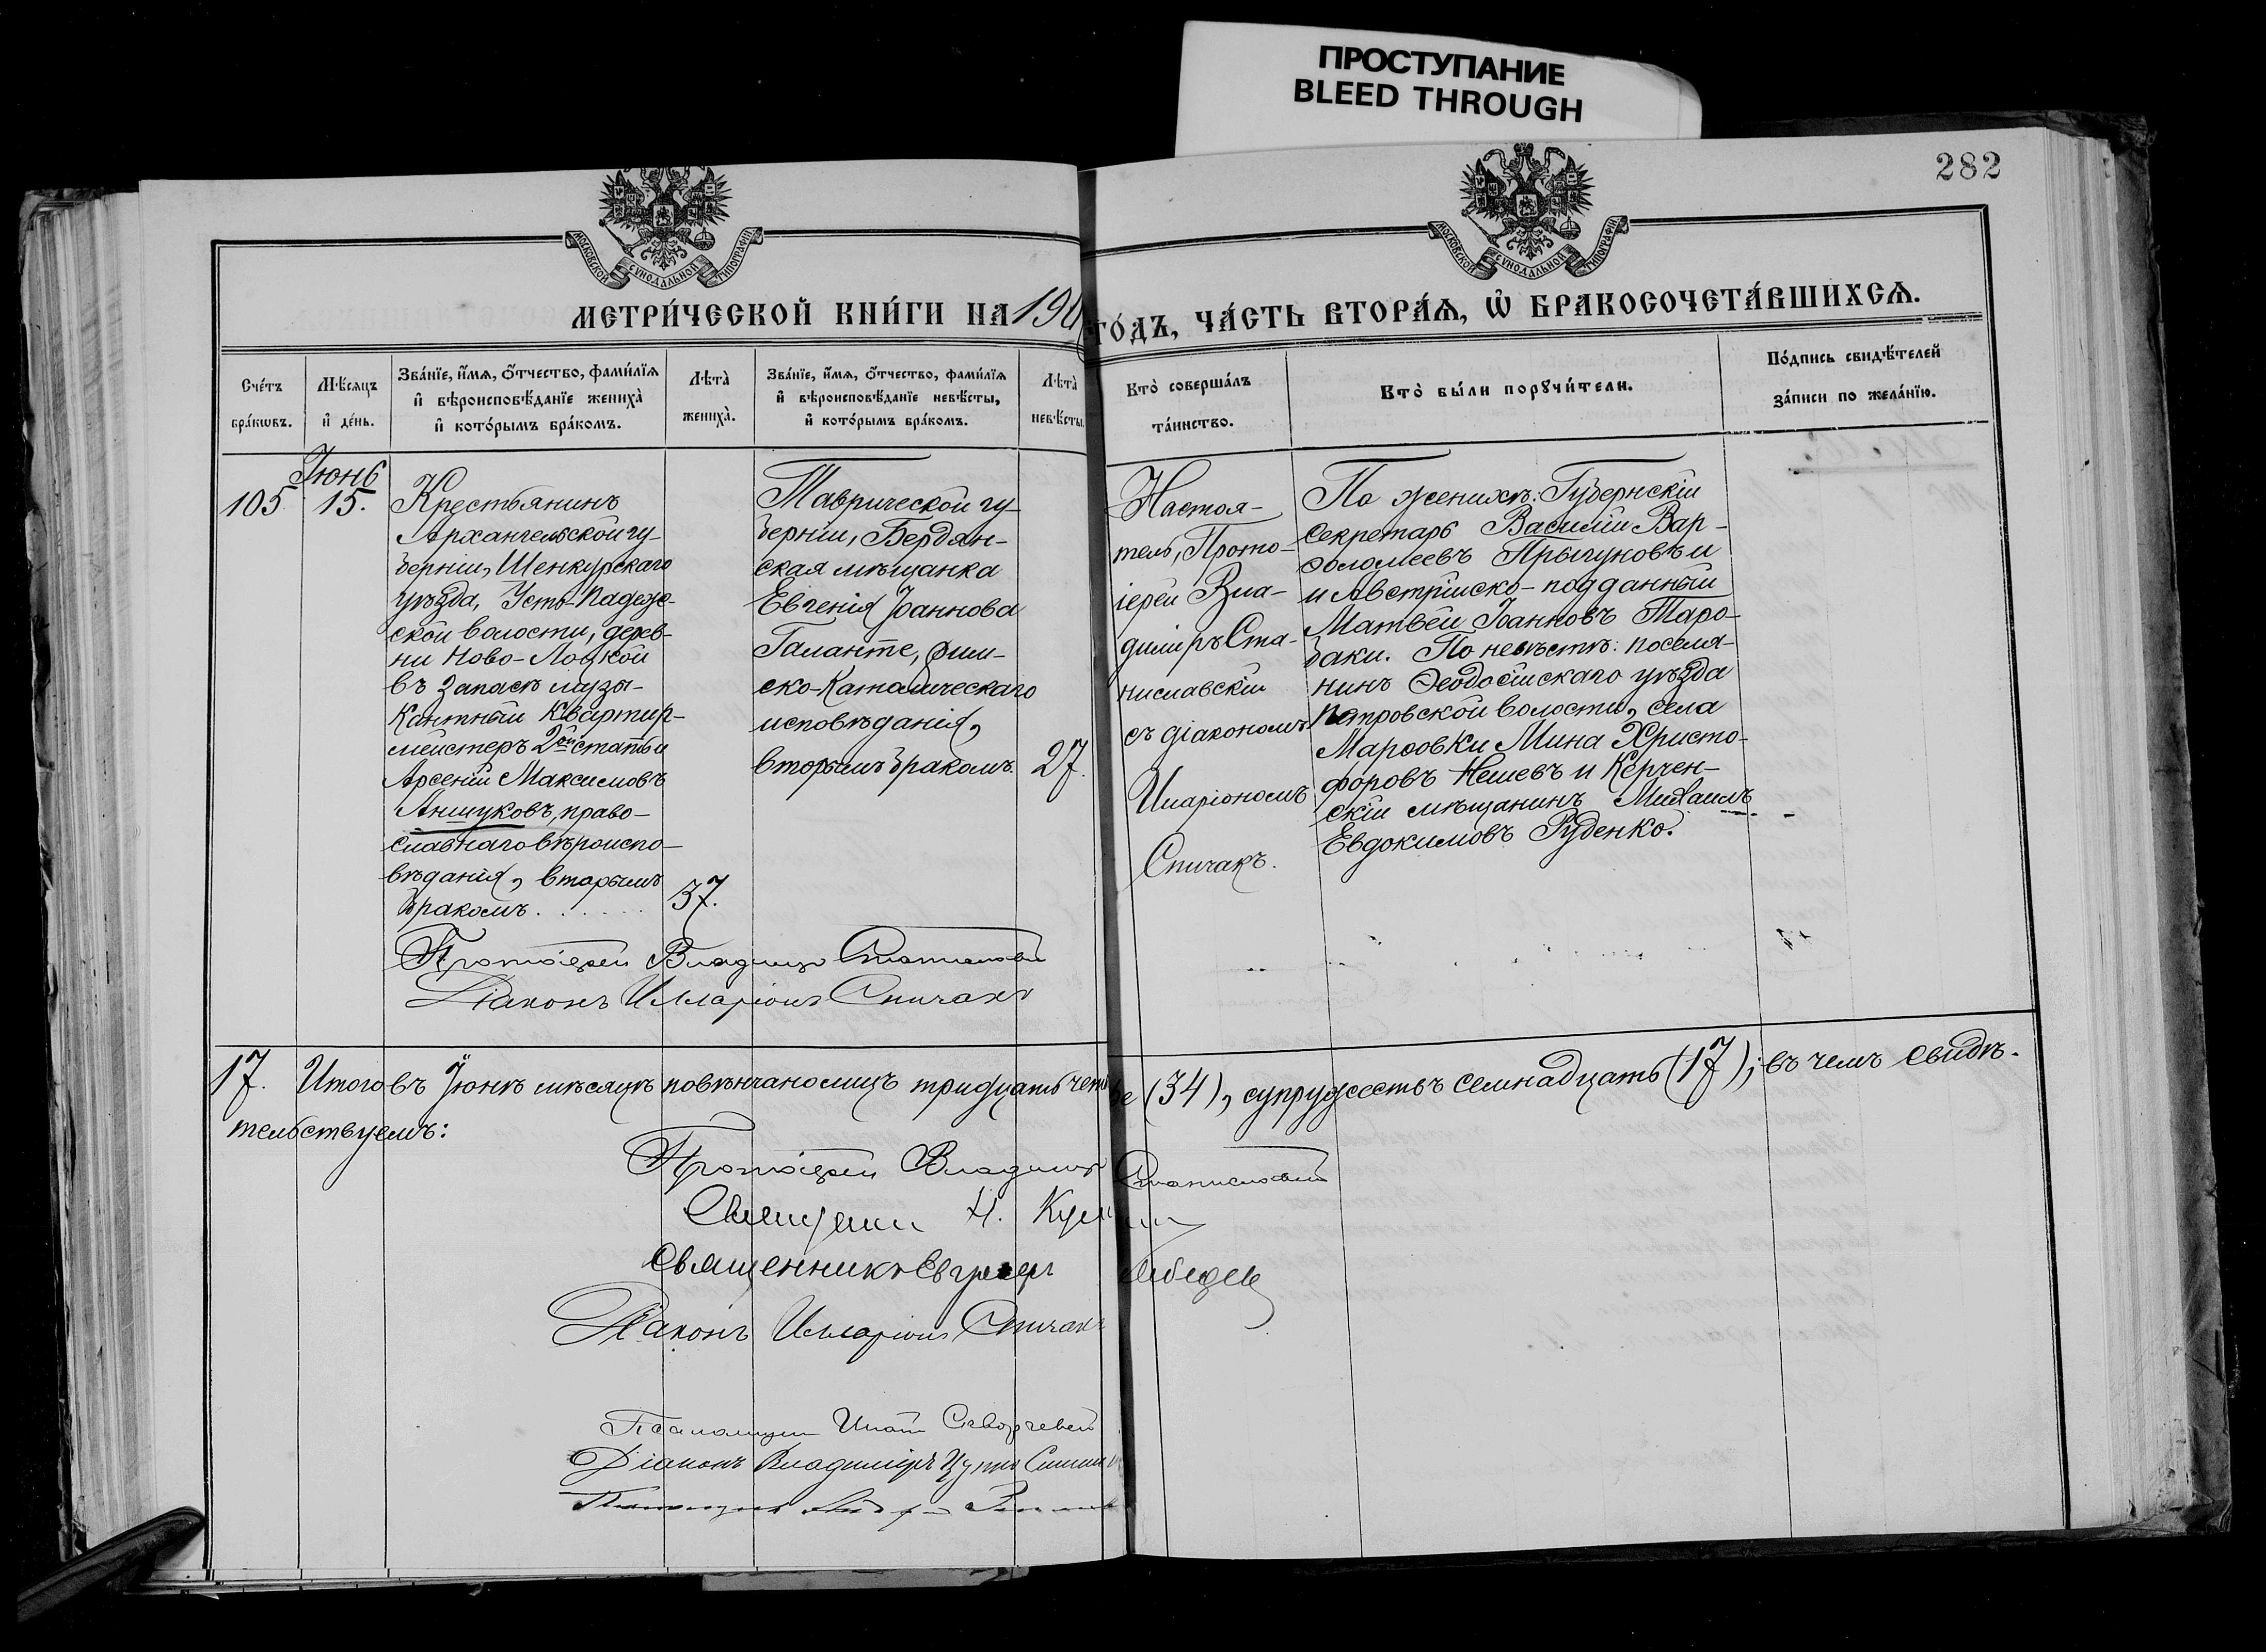 ПРОСТУПАНИЕ
BLEED THROUGH
282
МОСКОВСКОЙ СУНОДАЛЬНОЙ ТИПОГРАФІИ
МОСКОВСКОЙ СУНОДАЛЬНОЙ ТИПОГРАФІИ
МЕТРИ́ЧЕСКОЙ КНИ́ГИ НА 190
ГО́ДЪ, ЧА́СТЬ ВТОРА́Я, Ѡ҆ БРАКОСОЧЕТА́ВШИХСЯ.
Сче́тъ
бра́кѡвъ.
Мѣ́сяцъ
и҆ де́нь.
Зва́нїе, и҆́мя, ѻ҆́тчество, фами́лїя
и҆ вѣроисповѣ́данїе жениха̀
и҆ кото́рымъ бра́комъ.
Лѣта̀
жениха̀.
Зва́нїе, и҆́мя, ѻ҆́тчество, фами́лїя
и҆ вѣроисповѣ́данїе невѣ́сты,
и҆ кото́рымъ бра́комъ.
Лѣта̀
невѣ́сты.
Кто̀ соверша́лъ
та́инство.
Кто̀ бы́ли порꙋчи́тели.
По́дпись свидѣ́телей
за́писи по жела́нїю.
Іюнь
105
15.
Крестьянинъ
Архангельской гу-
берніи, Шенкурскаго
уѣзда, Усть-Падеж-
ской волости, дерев-
ни Ново-Лоцкой
въ запасѣ музы-
кантный Квартир-
мейстеръ 2ой статьи
Арсеній Максимовъ
Аншуковъ, право-
славнаго вѣроиспо-
вѣданія, вторымъ
бракомъ.
37.
Таврической гу-
берніи, Бердян-
ская мѣщанка
Евгенія Іоаннова
Галанте, рим-
ско-Католическаго
исповѣданія,
вторымъ бракомъ.
27.
Настоя-
тель, Прото-
іерей Вла-
диміръ Ста-
ниславскій
съ діакономъ
Иларіономъ
Спичакъ.
По женихѣ: Губернскій
секретарь Василій Вар-
ѳоломеевъ Прыгуновъ и
и Австрійско-подданный
Матвей Іоанновъ Таро-
баки. По невѣстѣ: поселя-
нинъ Ѳеодосійскаго уѣзда
Петровской волости, села
Марѳовки Мина Христо-
форовъ Нешевъ и Керчен-
скій мѣщанинъ Михаилъ
Евдокимовъ Руденко.
Протоіерей Владиміръ Станиславскій
Діаконъ Илларіонъ Спичакъ
17. Итого въ Іюнѣ мѣсяцѣ повѣнчано лицъ тридцать четы ре (34), супружествъ семнадцать (17); въ чемъ свидѣ-
тельствуемъ:
Протоіерей Владиміръ Станиславскій
Священникъ Н.
Священникъ Лебедев
Діаконъ Илларіонъ Спичакъ
Псаломщикъ
Діаконъ Владиміръ
Псаломщикъ